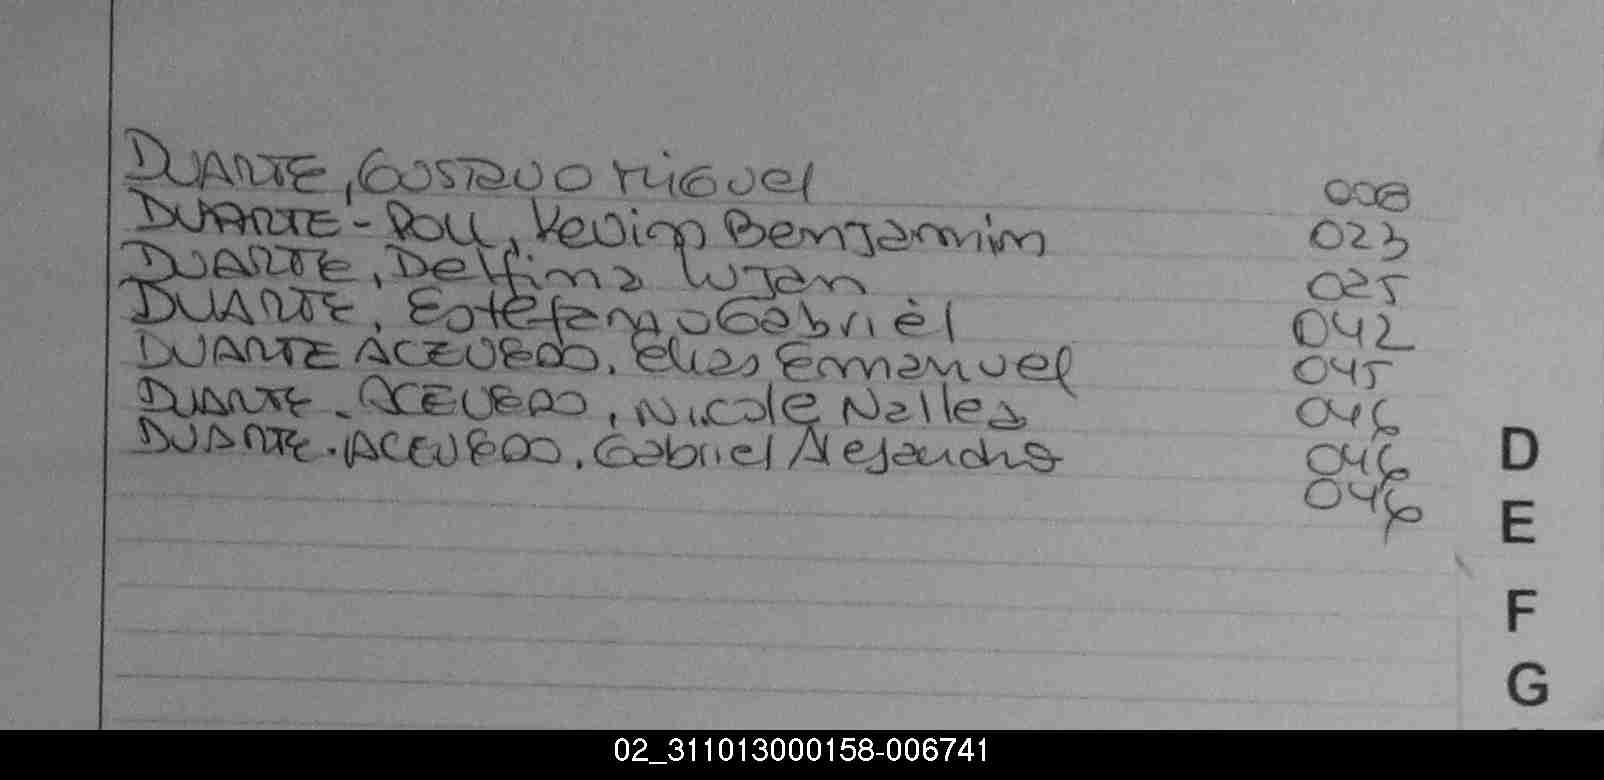 DUARTE, GUSTAVO MIGUEL 008
DUARTE - , Kevin Benjamin 023
DUARTE, Delfina Lujan 025
DUARTE, Estefano Gabriel 042
DUARTE ACEVEDO, Elias Emanuel 045
DUARTE - ACEVEDO, Nicole 046
DUARTE - ACEVEDO, Gabriel Alejandro 046
046
D
E
F
G
02_311013000158-006741